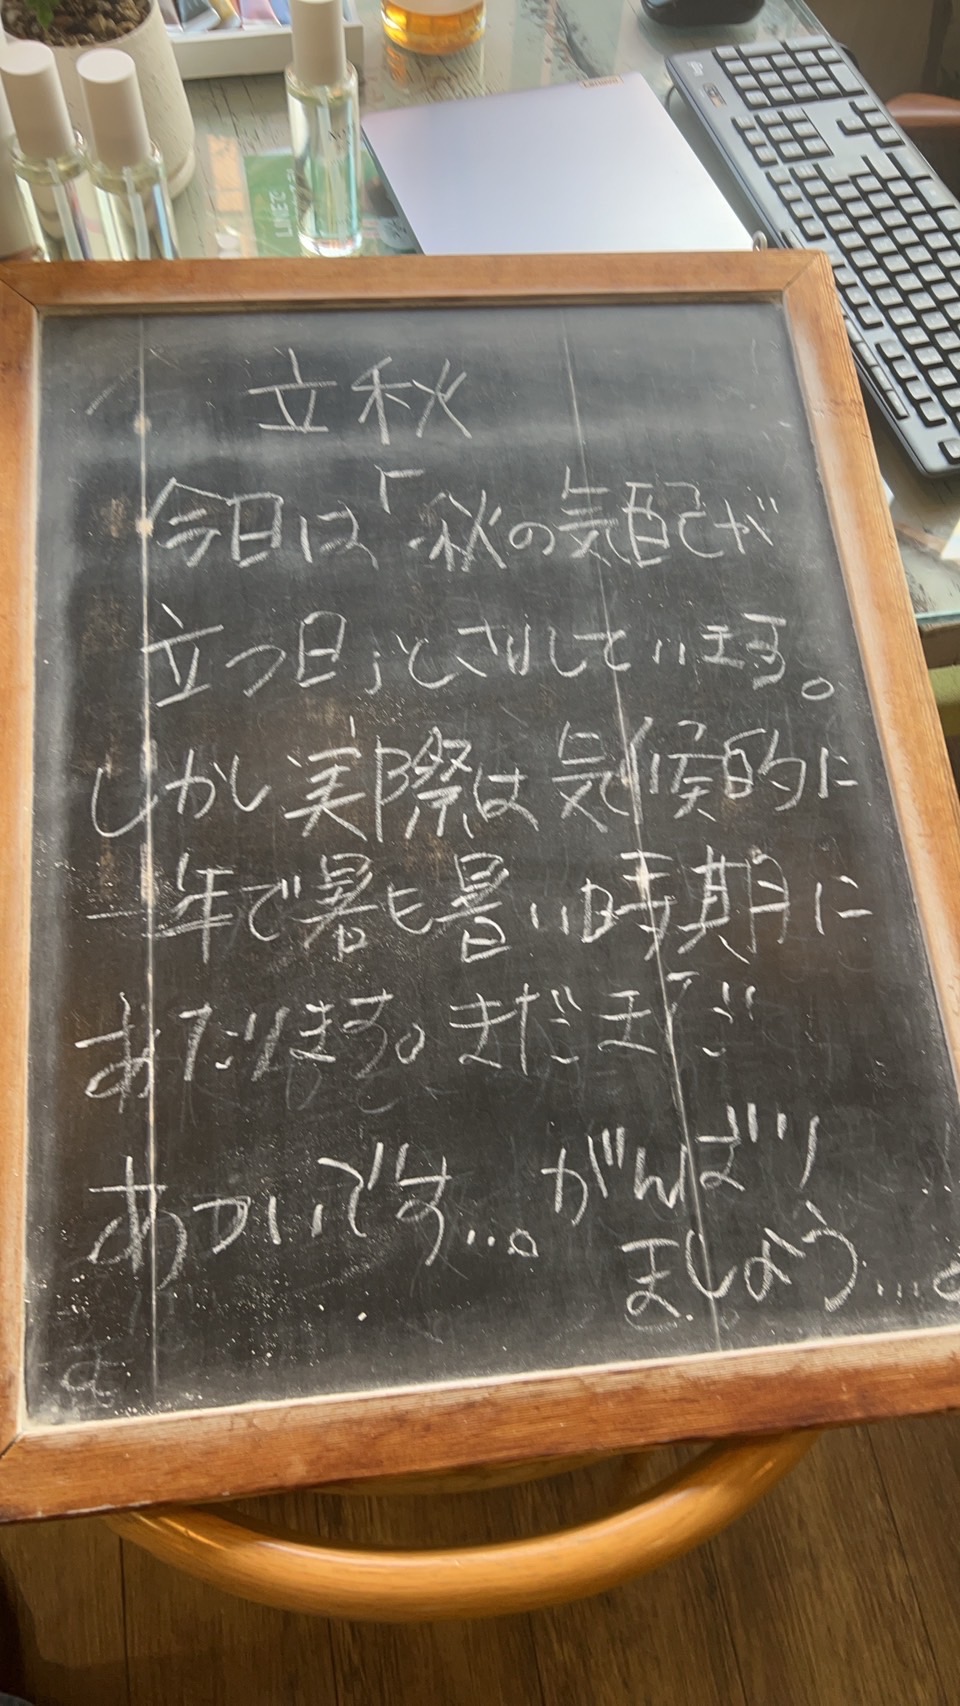 Lenovo
LINEで
立秋
今日は「秋の気配が
立つ日」とされています。
しかし実際は気候的に
一年で暑も暑い時期に
あたります。まだまだ
あついです…。がんばり
ましょう…。